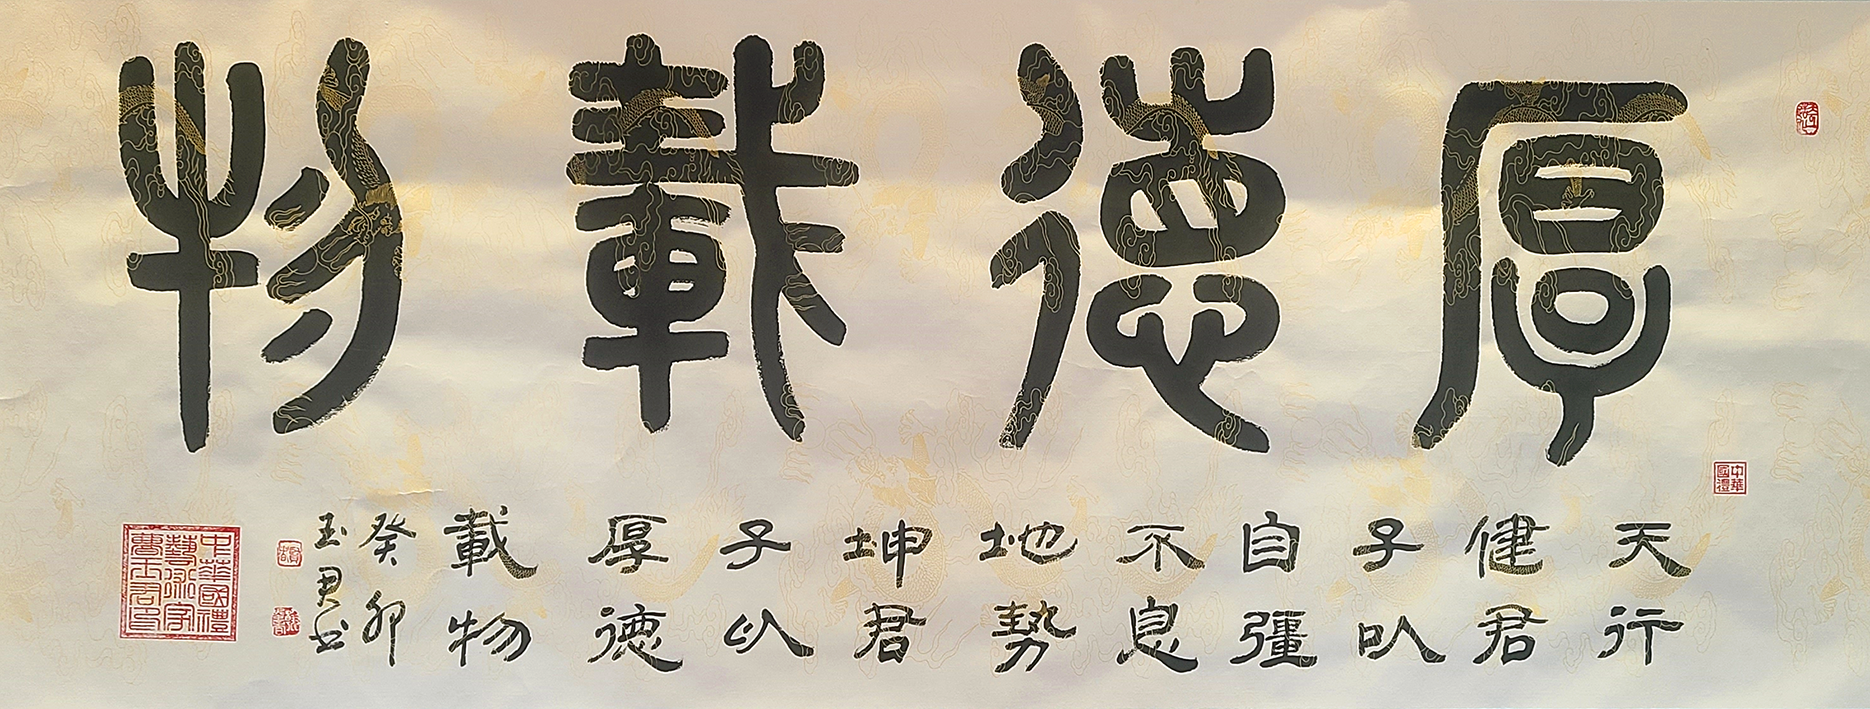 厚德載物
中華
國禮
天行
健君
子以
自彊
不息
地勢
坤君
子以
厚德
載物
癸卯
玉君书
中華國禮
藝術家
曹玉君印